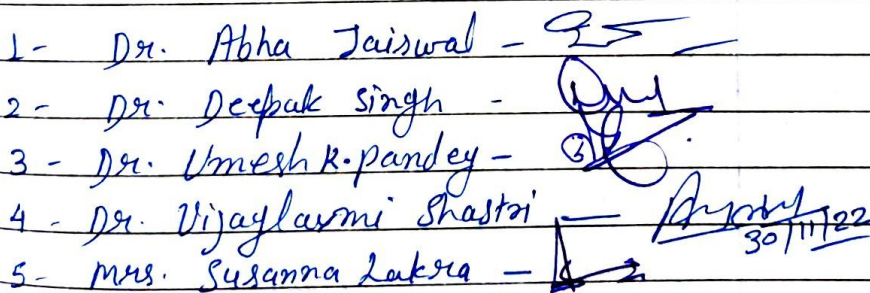 1- Dr. Abha Jaiswal -
2- Dr. Deepak Singh -
3 - Dr. Umesh R. pandey -
4 - Dr. Vijaylaxmi Shastri —
30/11/22
5- Mrs. Susanna Lakra —